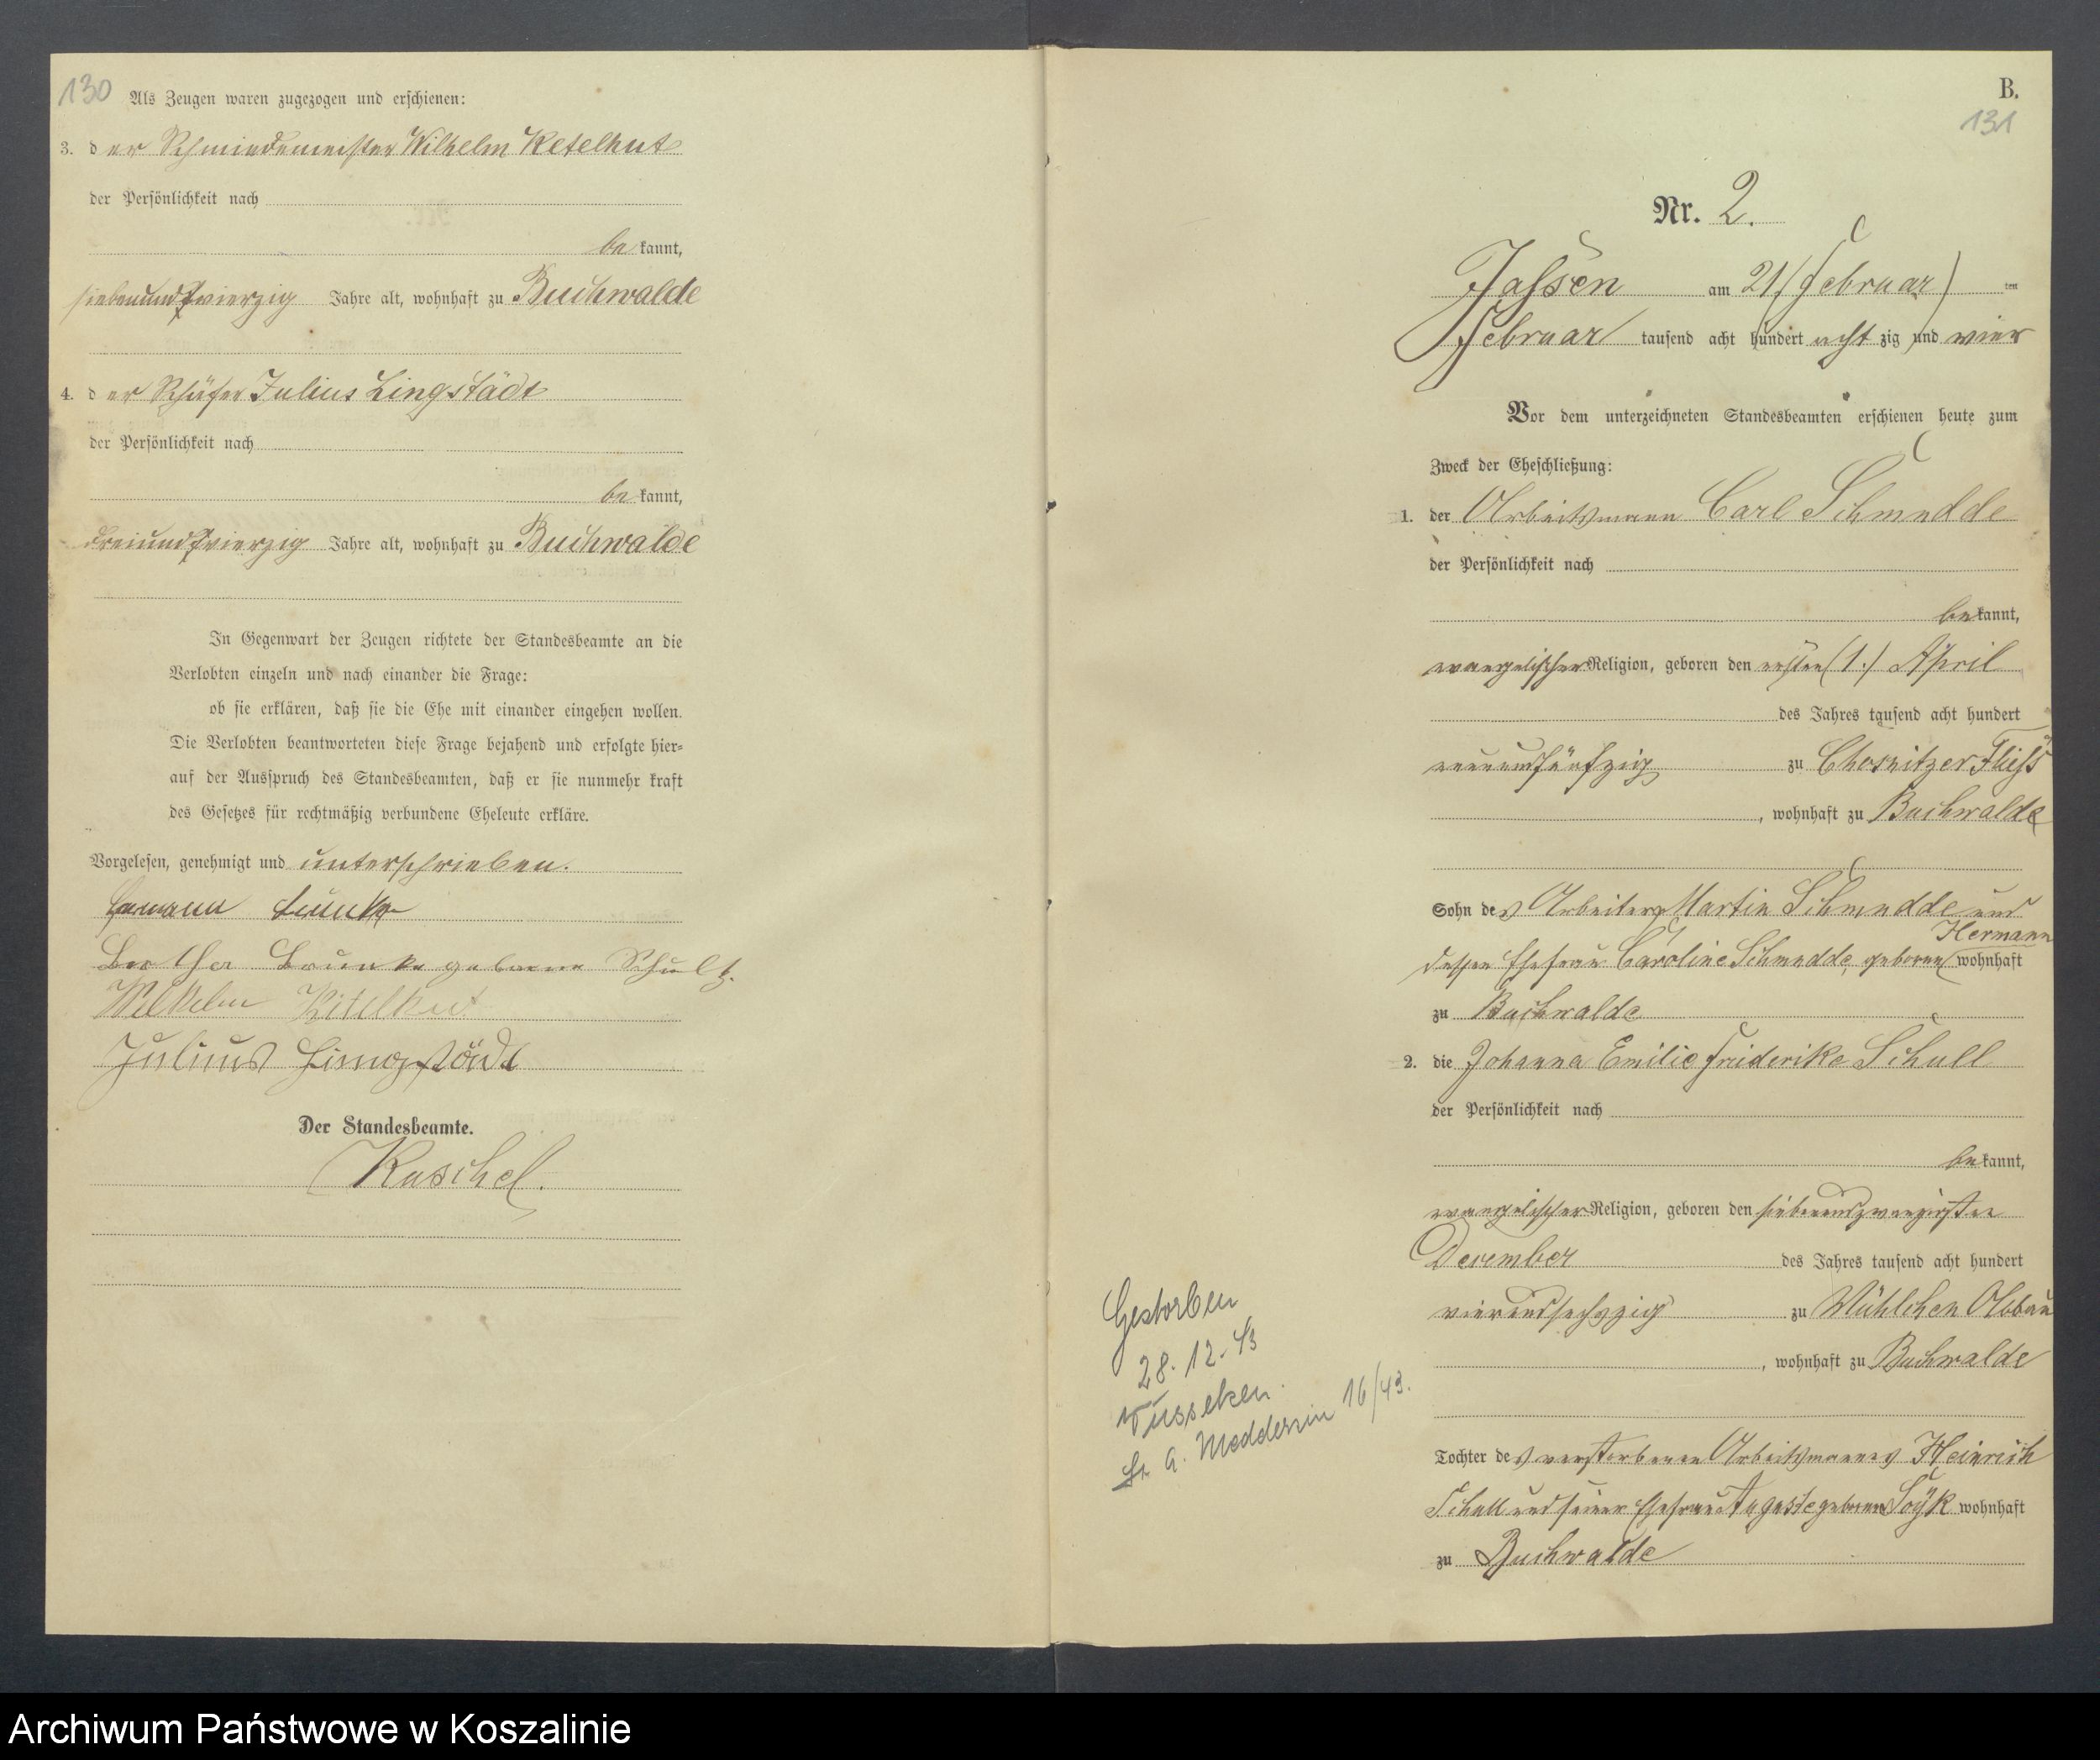 130
Als Zeugen waren zugezogen und erschienen:
3. der Schmiedemeister Wilhelm Ketelhut
der Persönlichkeit nach
bekannt,
siebenundvierzig Jahre alt, wohnhaft zu Buchwalde
4. der Schäfer Julius Lingstädt
der Persönlichkeit nach
bekannt,
dreiundvierzig Jahre alt, wohnhaft zu Buchwalde
In Gegenwart der Zeugen richtete der Standesbeamte an die
Verlobten einzeln und nach einander die Frage:
ob sie erklären, daß sie die Ehe mit einander eingehen wollen.
Die Verlobten beantworteten diese Frage bejahend und erfolgte hier-
auf der Ausspruch des Standesbeamten, daß er sie nunmehr kraft
des Gesetzes für rechtmäßig verbundene Eheleute erkläre.
Vorgelesen, genehmigt und unterschrieben.
Hermann
Bertha geborene Schultz.
Wilhelm Ketelhut
Julius Lingstädt
Der Standesbeamte.
Kuschel.
B.
131
Nr. 2.
Jassen am 21 (Februar) ten
Februar tausend acht hundert acht zig und vier
Vor dem unterzeichneten Standesbeamten erschienen heute zum
Zweck der Eheschließung:
1. der Arbeitsmann Carl Schmedde
der Persönlichkeit nach
bekannt,
evangelischer Religion, geboren den ersten (1.) April
des Jahres tausend acht hundert
neunundfünfzig zu Chosnitzer Fliess
, wohnhaft zu Buchwalde
Sohn des Arbeiters Martin Schmedde und
Hermann
dessen Ehefrau Caroline Schmedde, geborene wohnhaft
zu Buchwalde
2. die Johanna Emilie Friderike Schull
der Persönlichkeit nach
bekannt,
evangelischer Religion, geboren den siebenundzwanzigsten
Dezember des Jahres tausend acht hundert
vierundsechzig zu Mühlchen
, wohnhaft zu Buchwalde
Tochter des verstorbenen Arbeitsmannes Heinrich
Schull und seiner Ehefrau Auguste geborene wohnhaft
zu Buchwalde
Gestorben
28. 12. 43
Wusseken.
St. A. Modderzin 16/43.
Archiwum Państwowe w Koszalinie